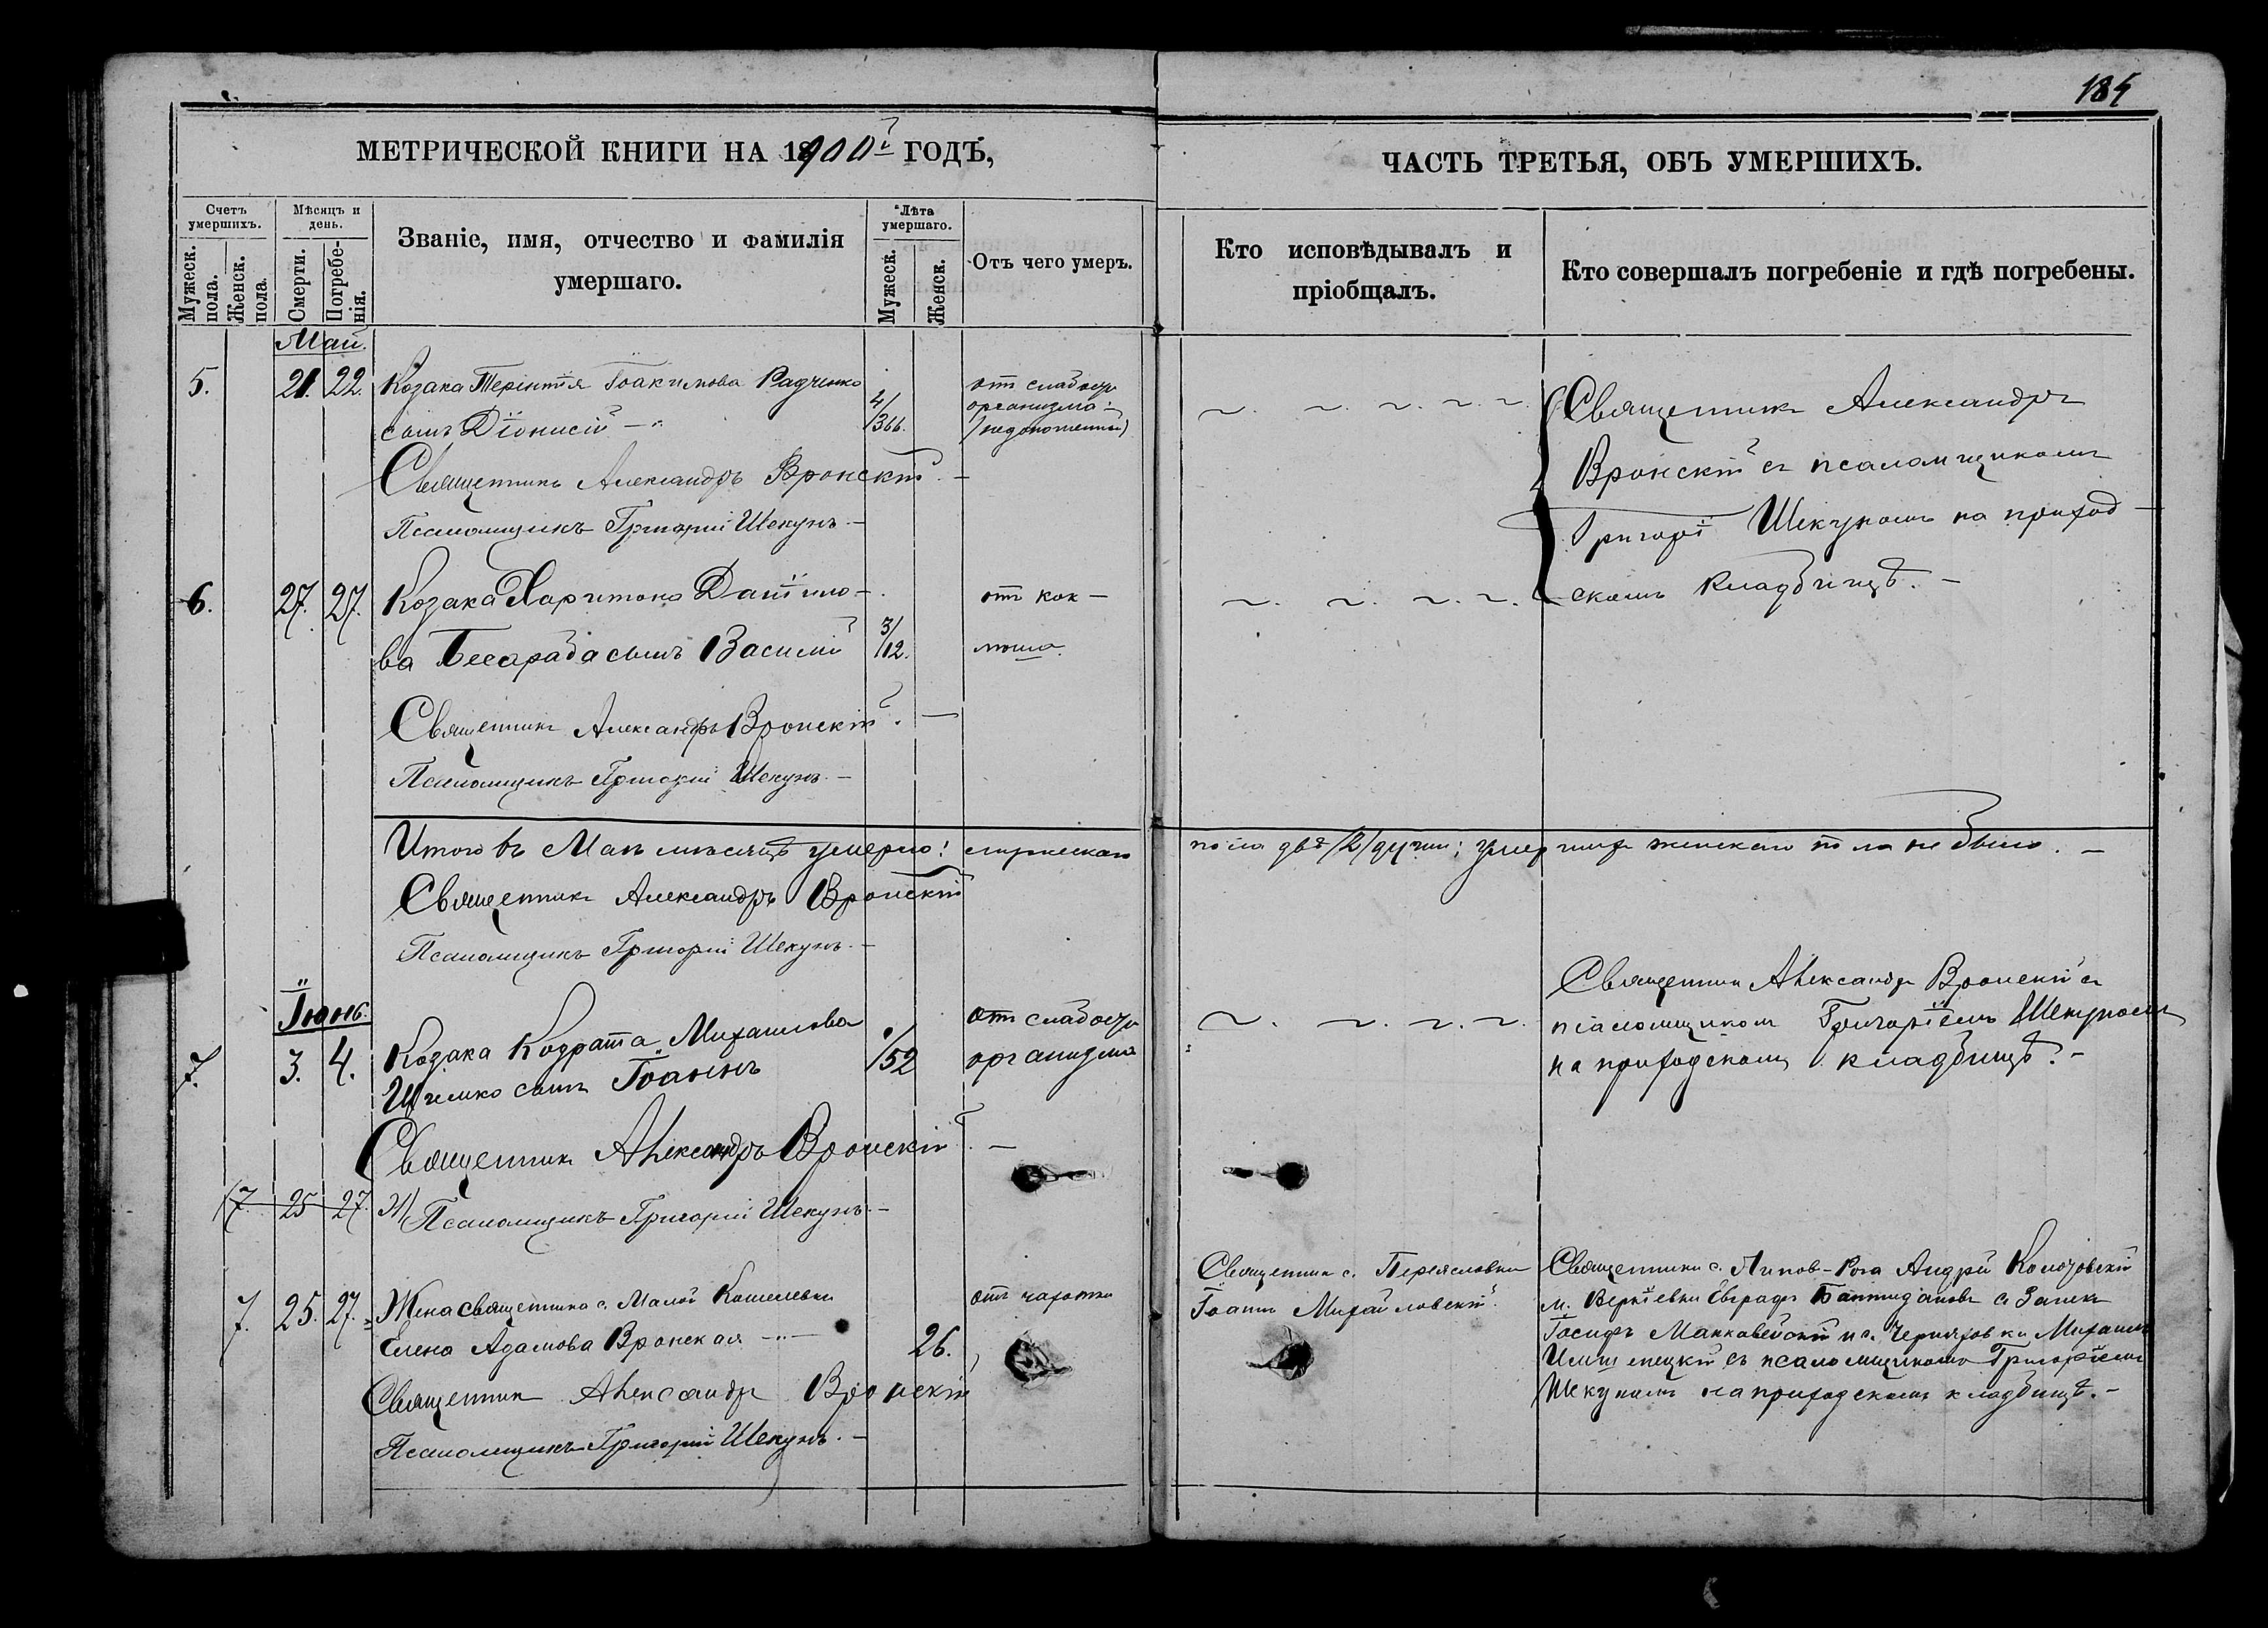 184
МЕТРИЧЕСКОЙ КНИГИ НА 1900й ГОДЪ,
ЧАСТЬ ТРЕТЬЯ, ОБЪ УМЕРШИХЪ.
Счетъ умершихъ.
Мужеск. пола.
Женск. пола.
Мѣсяцъ и день.
Смерти.
Погребенія.
Званіе, имя, отчество и фамилія
умершаго.
Лѣта умершаго.
Мужеск.
Женск.
Отъ чего умеръ.
Кто исповѣдывалъ и
пріобщалъ.
Кто совершалъ погребеніе и гдѣ погребены.
Май.
5. 21. 22. Козака Терентія Іоакимова Радченко
сынъ Діонисій
4/366.
от слабости
организма
(недоношенный)
Священникъ Александръ Вронскій.
Псаломщикъ Григорій Шекунъ.
Священникъ Александръ
Вронскій съ псаломщикомъ
Григорі Шекуномъ на приход-
скомъ кладбищѣ.
6. 27. 27. Козака Харитона Даніило-
ва Бесарабасынъ Василій
3/12.
отъ кок-
люша.
Священникъ Александръ Вронскій.
Псаломщикъ Григорій Шекунъ.
Итого въ Маѣ мѣсяцѣ умерло: мужескаго пола двѣ /2/ души; умершихъ женскаго пола не было.
Священникъ Александръ Вронскій
Псаломщикъ Григорій Шекунъ.
Іюнь.
7. 3. 4. Козака Кодрата Михаилова
сынъ Іоаннъ
/52
отъ слабости
организма
Священникъ Александръ Вронскій съ
псаломщиком Григоріемъ Шекуномъ
на приходскомъ кладбищѣ.
Священникъ Александръ Вронскій.
7. 25 27. Ж
Псаломщикъ Григорій Шекунъ.
7. 25. 27. Жена священника с. Малой Кошелевки
Елена Адамова Вронская
26.
отъ чахотки
Священник с. Переясловки
Іоаннъ Михайловскій.
Священники с. Липов-Рога Андрей
м. Веркіевки Евграфъ
Іосифъ и с. Черняховки Михаилъ
съ псаломщикомъ Григоріемъ
Шекуномъ на приходскомъ кладбищѣ.
Священник Александръ Вронскій
Псаломщикъ Григорій Шекунъ.